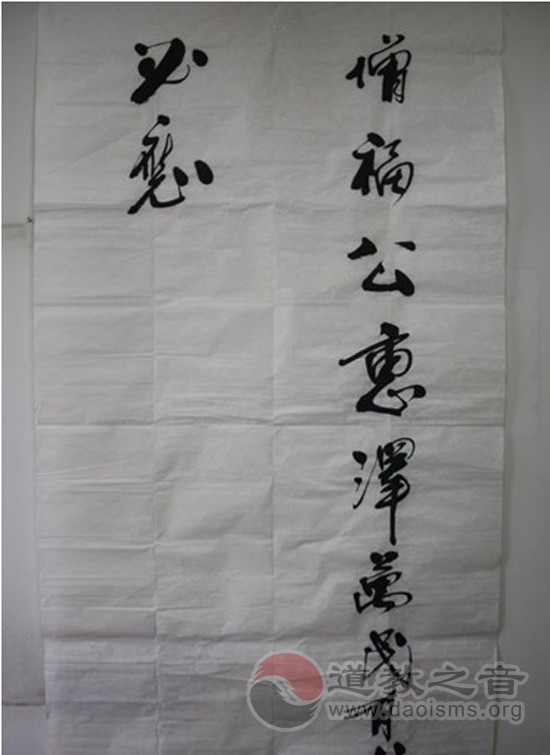 增福公惠澤萬民有
必應
道教之音
www.daoisms.org